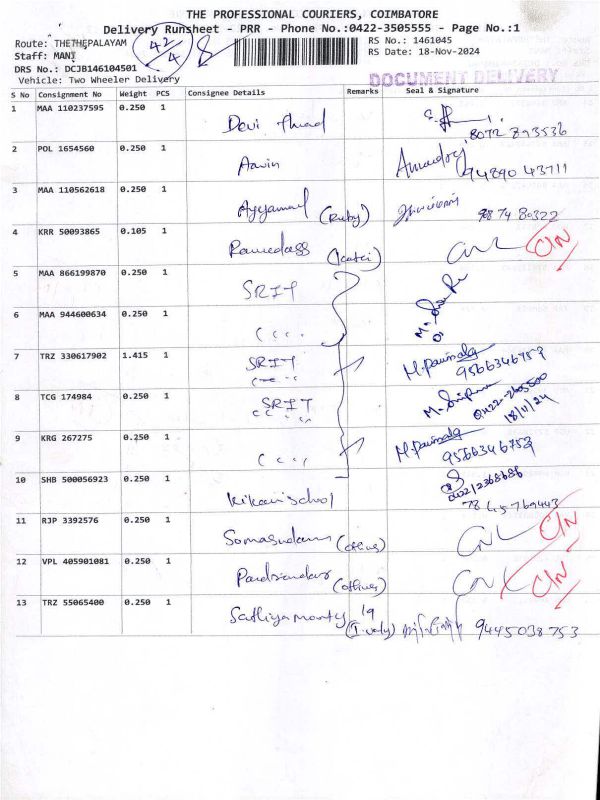 THE PROFESSIONAL COURIERS, COIMBATORE
Delivery Runsheet - PRR - Phone No.:0422-3505555 - Page No.:1
Route: THETHEPALAYAM
42/4 8
RS No.: 1461045
Staff: MANI
RS Date: 18-Nov-2024
DRS No.: DCJB146104501
Vehicle: Two Wheeler Delivery
DOCUMENT DELIVERY
S No Consignment No Weight PCS Consignee Details Remarks Seal & Signature
1 MAA 110237595 0.250 1 Devi 8072 893536
2 POL 1654560 0.250 1 94890 43711
3 MAA 110562618 0.250 1 Ayyamal (Ruby) 9874 80322
4 KRR 50093865 0.105 1 Ramedass CNL C/N
5 MAA 866199870 0.250 1 SRIT
6 MAA 944600634 0.250 1
7 TRZ 330617902 1.415 1 SRIT 9566346753
8 TCG 174984 0.250 1 SRIT 0422-2605500
18/11/24
9 KRG 267275 0.250 1 9566346753
10 SHB 500056923 0.250 1 Kikani school 0422/2368686
78 45769443
11 RJP 3392576 0.250 1 CNL C/N
12 VPL 405901081 0.250 1 CNL C/N
13 TRZ 55065400 0.250 1 9445038753